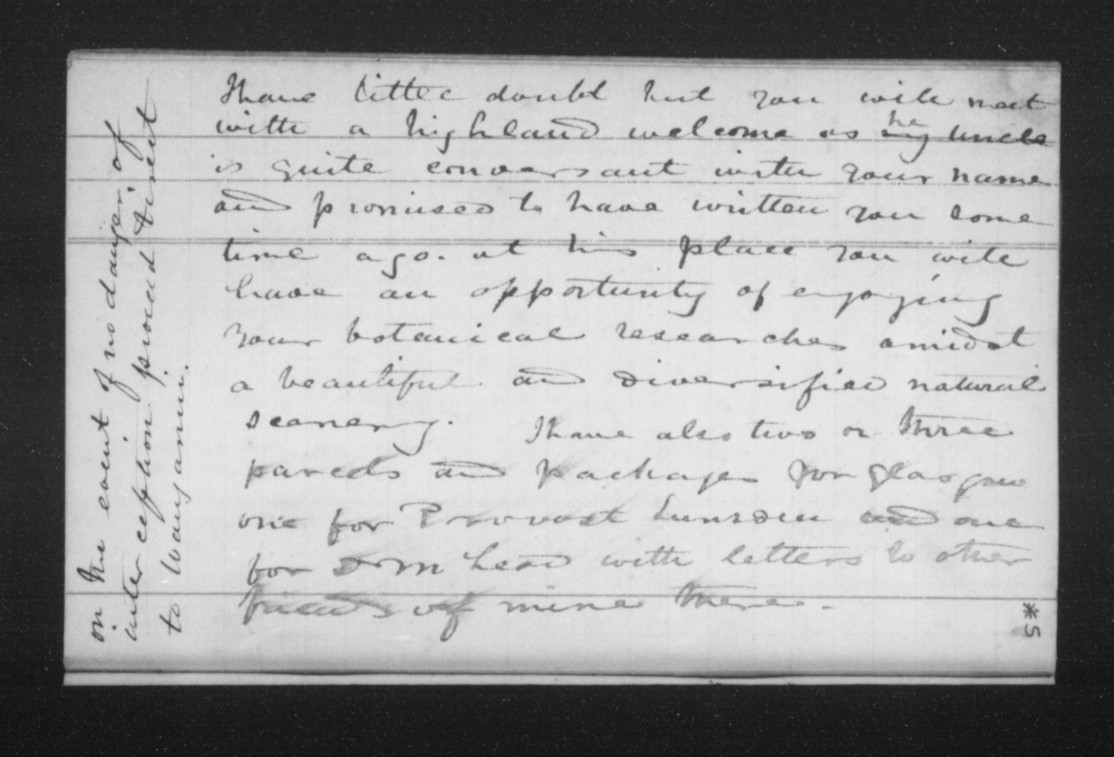 I have little doubt but you will meet
with a highland welcome as he my uncle
is quite conversant with your name
and promised to have written you some
time ago. at his place you will
have an opportunity of enjoying
your botanical researches amidst
a beautiful and diversified natural
scenery. I have also two or three
parcels and packages for Glasgow
one for Provost Lumsden and one
for with letters to other
friends of mine there.
in the event of no danger of
interception proceed direct
to
*5